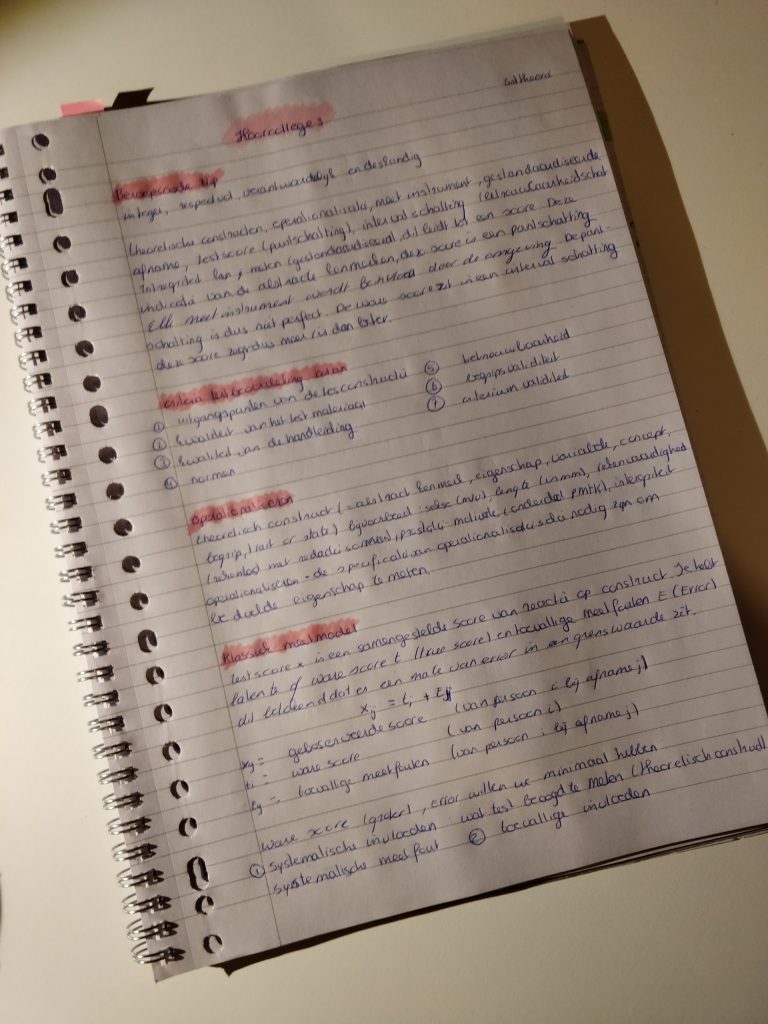 Hoorcollege 1
Beroepscode NIP
integer, respectvol, verantwoordelijk en deskundig
theoretische constructen, operationalisatie, meet instrument, gestandaardiseerde
afname, testscore (puntschatting), interval schatting (betrouwbaarheidschat
meten (gestandaardiseerd, dit leidt tot een score. Deze
indicatie van de abstracte kenmerken, deze score is een puntschatting
Elk meet instrument wordt beïnvloed door de omgeving. De punt-
schatting is dus niet perfect. De ware score zit in een interval schatting
deze score zegt dus meer is dan beter.
criteria testbeoordeling cotan
① uitgangspunten van de testconstructie
② kwaliteit van het test materiaal
③ kwaliteit van de handleiding
④ normen
⑤ betrouwbaarheid
⑥ begripsvaliditeit
⑦ criterium validiteit
operationaliseren
theoretisch construct (= abstract kenmerk, eigenschap, variabele, concept,
begrip, trait or state) bijvoorbeeld: sekse (m/v), lengte (in mm), rekenvaardigheid
met redactie sommen), prestatie motivatie (onderdeel PMTK),
operationalisatie = de specificatie van operationalisaties die nodig zijn om
bedoelde eigenschap te meten.
Klassiek meetmodel
testscore x is een samengestelde score van reactie op construct. Je hebt
latente of ware score t (true score) en toevallige meetfouten E (Error)
dit betekend dat er een mate van error in een grenswaarde zit.
xij = ti + Eij
xij = geobserveerde score (van persoon i bij afname j)
ti = ware score (van persoon i)
Eij = toevallige meetfouten (van persoon i bij afname j)
ware score, error willen we minimaal hebben
① systematische invloeden: wat test beoogd te meten (theoretisch construct)
systematische meetfout ② toevallige invloeden